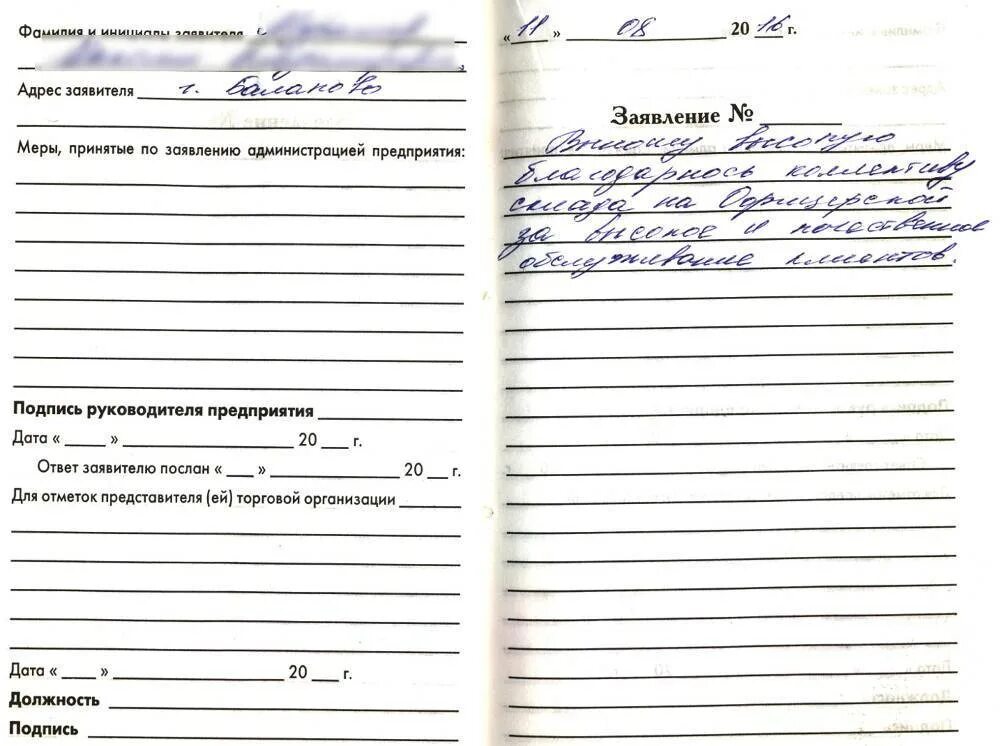 Фамилия и инициалы заявителя
Адрес заявителя г. Балаково
Меры, принятые по заявлению администрацией предприятия:
Подпись руководителя предприятия
Дата « » 20 г.
Ответ заявителю послан « » 20 г.
Для отметок представителя (ей) торговой организации
Дата « » 20 г.
Должность
Подпись
« 11 » 08 20 16 г.
Заявление №
Выношу высокую
благодарнось коллективу
склада на Офицерской
за высокое и качественное
обслуживание клиентов.